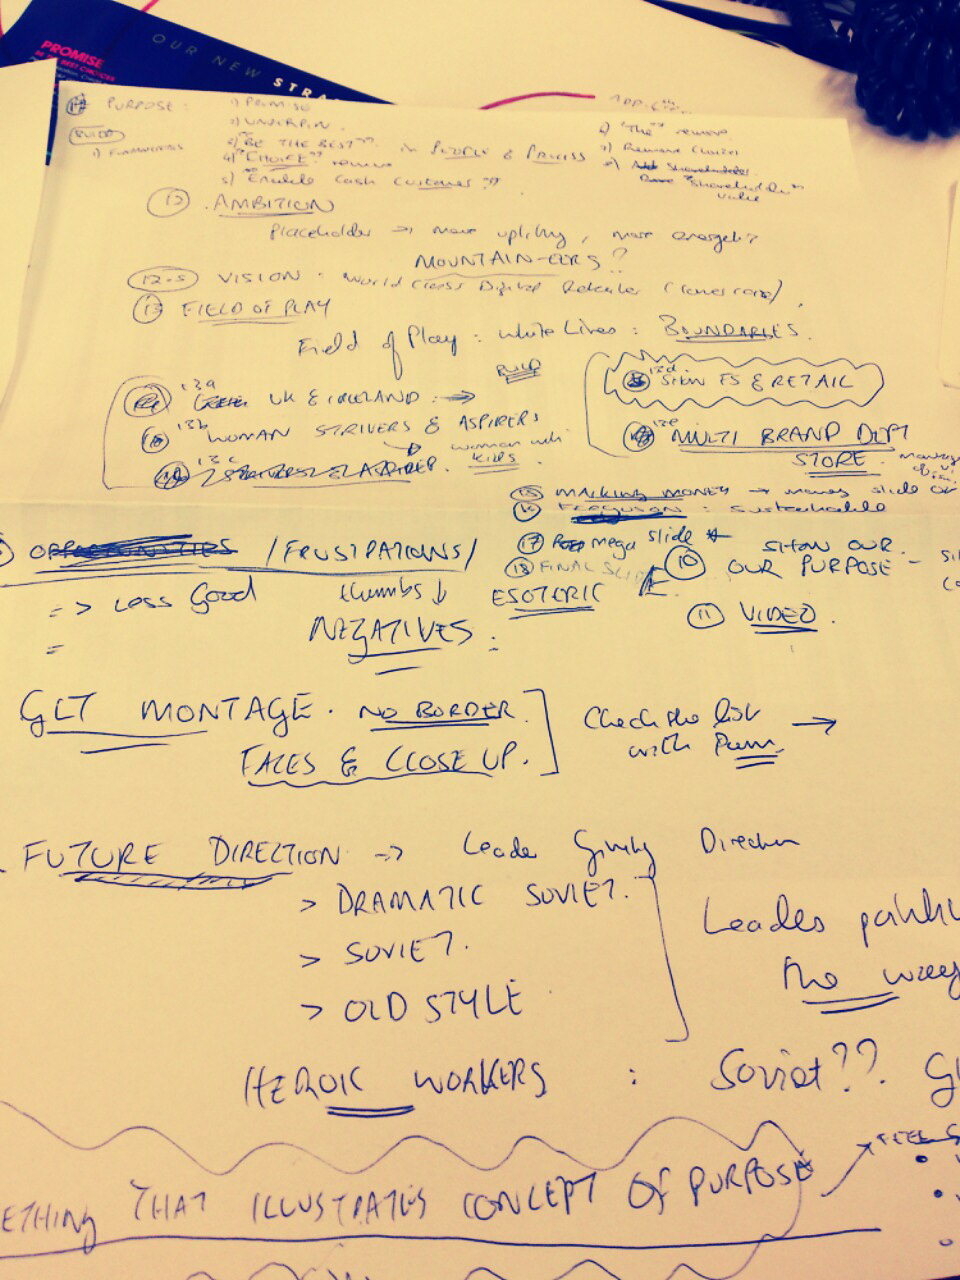 PROMISE
OUR NEW STRA
PURPOSE: 1) PROMISE
2) UNDERPIN
BUILD
3) "BE THE BEST" in PEOPLE & PROCESS
4) "CHOICE" remove
5) "Enable Cash Customer"
6) "The" remove
7) Remove Choice
shareholder
"shareholder"
value
12 AMBITION
Placeholder → more uplifting, more energetic
MOUNTAIN-EERS?
12-5 VISION: World Class Digital Retailer
13 FIELD OF PLAY
Field of Play: White Lines: BOUNDARIES.
BUILD
13a UK & IRELAND: →
13b WOMAN STRIVERS & ASPIRERS
woman with
kids
13c
13d SHOW FS & RETAIL
13e MULTI BRAND DEPT
STORE.
15 MAKING MONEY → money slide or
16 FERGUSON: Sustainable
17 mega slide
18 FINAL SLIDE
10 SHOW OUR.
OUR PURPOSE –
11 VIDEO.
OPPORTUNITIES /FRUSTRATIONS/
=> Less Good
thumbs ↓
ESOTERIC
=
NEGATIVES:
GET MONTAGE. NO BORDER.
FACES & CLOSE UP.
Check the list
with Pam →
FUTURE DIRECTION → Leader Giving Direction
> DRAMATIC SOVIET.
> SOVIET.
> OLD STYLE
Leaders
the way
HEROIC WORKERS : Soviet??
ETHING THAT ILLUSTRATES CONCEPT OF PURPOSE